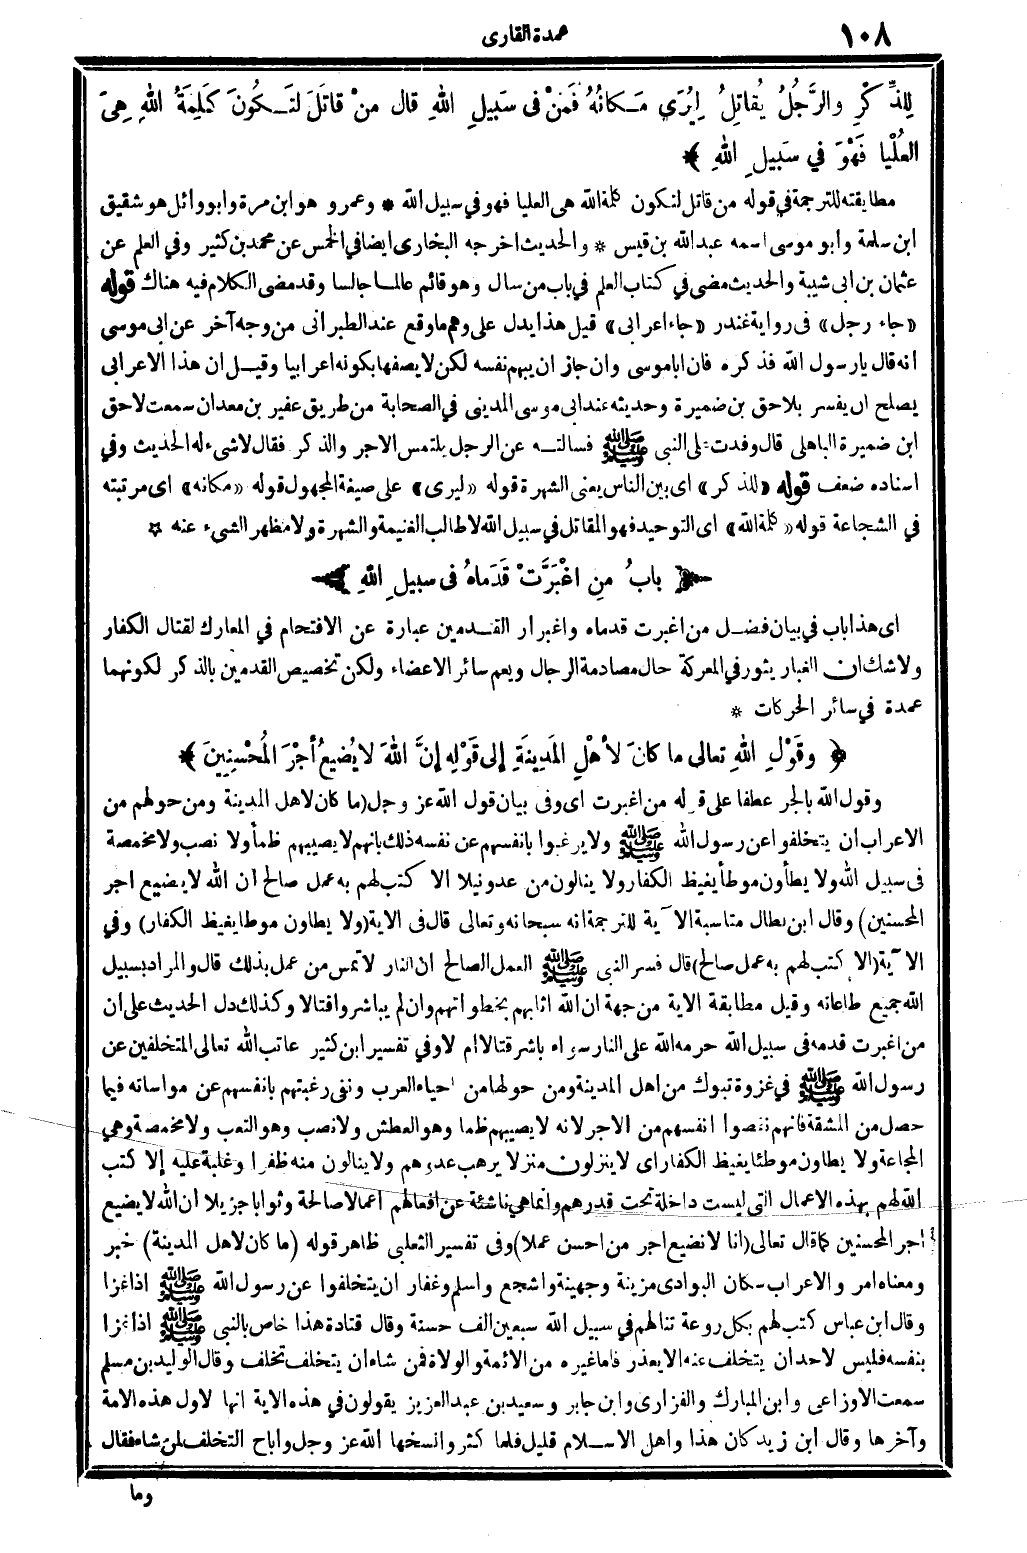 ١٠٨
عمدة القارى
لِلذِّكْرِ والرَّجُلُ يُقاتِلُ لِيُرَى مَكانُهُ فَمَنْ فى سَبِيلِ اللهِ قال منْ قاتَلَ لتَكُونَ كَلِمَةُ اللهِ هِىَ
العُلْيا فَهْوَ في سَبِيلِ اللهِ ﴾
مطابقته للترجمة في قوله من قاتل لتكون كلمة الله هى العليا فهو في سبيل الله * وعمرو هو ابن مرة وابو وائل هو شقيق
ابن سلمة وابو موسى اسمه عبدالله بن قيس * والحديث اخرجه البخارى ايضا في الخمس عن محمد بن كثير وفي العلم عن
عثمان بن ابى شيبة والحديث مضى في كتاب العلم في باب من سال وهو قائم عالما جالسا وقد مضى الكلام فيه هناك قوله
«جاء رجل» فى رواية غندر «جاء اعرابى» قيل هذا يدل على وهم ما وقع عند الطبرانى من وجه آخر عن ابى موسى
انه قال يا رسول الله فذكره فان ابا موسى وان جاز ان يبهم نفسه لكن لا يصفها بكونه اعرابيا وقيل ان هذا الاعرابى
يصلح ان يفسر بلاحق بن ضميرة وحديثه عند ابى موسى المدينى في الصحابة من طريق عفير بن معدان سمعت لاحق
ابن ضميرة الباهلى قال وفدت على النبى ﷺ فسالته عن الرجل يلتمس الاجر والذكر فقال لا شىء له الحديث وفي
اسناده ضعف قوله «للذكر» اى بين الناس يعنى الشهرة قوله «ليرى» على صيغة المجهول قوله «مكانه» اى مرتبته
في الشجاعة قوله «كلمة الله» اى التوحيد فهو المقاتل في سبيل الله لا طالب الغنيمة والشهرة ولا مظهر الشىء عنه *
﴿ بابُ منِ اغْبَرَّتْ قَدَماهُ فى سبيلِ اللهِ ﴾
اى هذا باب في بيان فضل من اغبرت قدماه واغبرار القدمين عبارة عن الاقتحام في المعارك لقتال الكفار
ولا شك ان الغبار يثور في المعركة حال مصادمة الرجال ويعم سائر الاعضاء ولكن تخصيص القدمين بالذكر لكونهما
عمدة في سائر الحركات *
﴿ وقَوْلِ اللهِ تعالى ما كانَ لأهْلِ المَدِينَةِ إلى قَوْلِهِ إنَّ اللهَ لا يُضِيعُ أجْرَ المُحْسِنِينَ ﴾
وقول الله بالجر عطفا على قوله من اغبرت اى وفى بيان قول الله عز وجل (ما كان لاهل المدينة ومن حولهم من
الاعراب ان يتخلفوا عن رسول الله ﷺ ولا يرغبوا بانفسهم عن نفسه ذلك بانهم لا يصيبهم ظمأ ولا نصب ولا مخمصة
فى سبيل الله ولا يطأون موطأ يغيظ الكفار ولا ينالون من عدو نيلا الا كتب لهم به عمل صالح ان الله لا يضيع اجر
المحسنين) وقال ابن بطال مناسبة الآية للترجمة انه سبحانه وتعالى قال فى الاية (ولا يطاون موطا يغيظ الكفار) وفي
الآية (الا كتب لهم به عمل صالح) قال فسر النبى ﷺ العمل الصالح ان النار لا تمس من عمل بذلك قال والمراد بسبيل
الله جميع طاعاته وقيل مطابقة الاية من جهة ان الله اثابهم بخطواتهم وان لم يباشروا قتالا وكذلك دل الحديث على ان
من اغبرت قدمه فى سبيل الله حرمه الله على النار سواء باشر قتالا ام لا وفي تفسير ابن كثير عاتب الله تعالى المتخلفين عن
رسول الله ﷺ في غزوة تبوك من اهل المدينة ومن حولها من احياء العرب ونفى رغبتهم بانفسهم عن مواساته فيما
حصل من المشقة فانهم نقصوا انفسهم من الاجر لانه لا يصيبهم ظما وهو العطش ولا نصب وهو التعب ولا مخمصة وهي
المجاعة ولا يطاون موطئا يغيظ الكفار اى لا ينزلون منزلا يرهب عدوهم ولا ينالون منه ظفرا وغلبة عليه إلا كتب
الله لهم بهذه الاعمال التى ليست داخلة تحت قدرهم وانما هي ناشئة عن افعالهم اعمالا صالحة وثوابا جزيلا ان الله لا يضيع
اجر المحسنين كما قال تعالى (انا لا نضيع اجر من احسن عملا) وفى تفسير الثعلبى ظاهر قوله (ما كان لاهل المدينة) خبر
ومعناه امر والاعراب سكان البوادى مزينة وجهينة واشجع واسلم وغفار ان يتخلفوا عن رسول الله ﷺ اذا غزا
وقال ابن عباس كتب لهم بكل روعة تنالهم في سبيل الله سبعين الف حسنة وقال قتادة هذا خاص بالنبى ﷺ اذا غزا
بنفسه فليس لاحد ان يتخلف عنه الا بعذر فاما غيره من الائمة والولاة فمن شاء ان يتخلف تخلف وقال الوليد بن مسلم
سمعت الاوزاعى وابن المبارك والفزارى وابن جابر وسعيد بن عبد العزيز يقولون في هذه الاية انها لاول هذه الامة
وآخرها وقال ابن زيد كان هذا واهل الاسلام قليل فلما كثروا نسخها الله عز وجل واباح التخلف لمن شاء فقال
وما